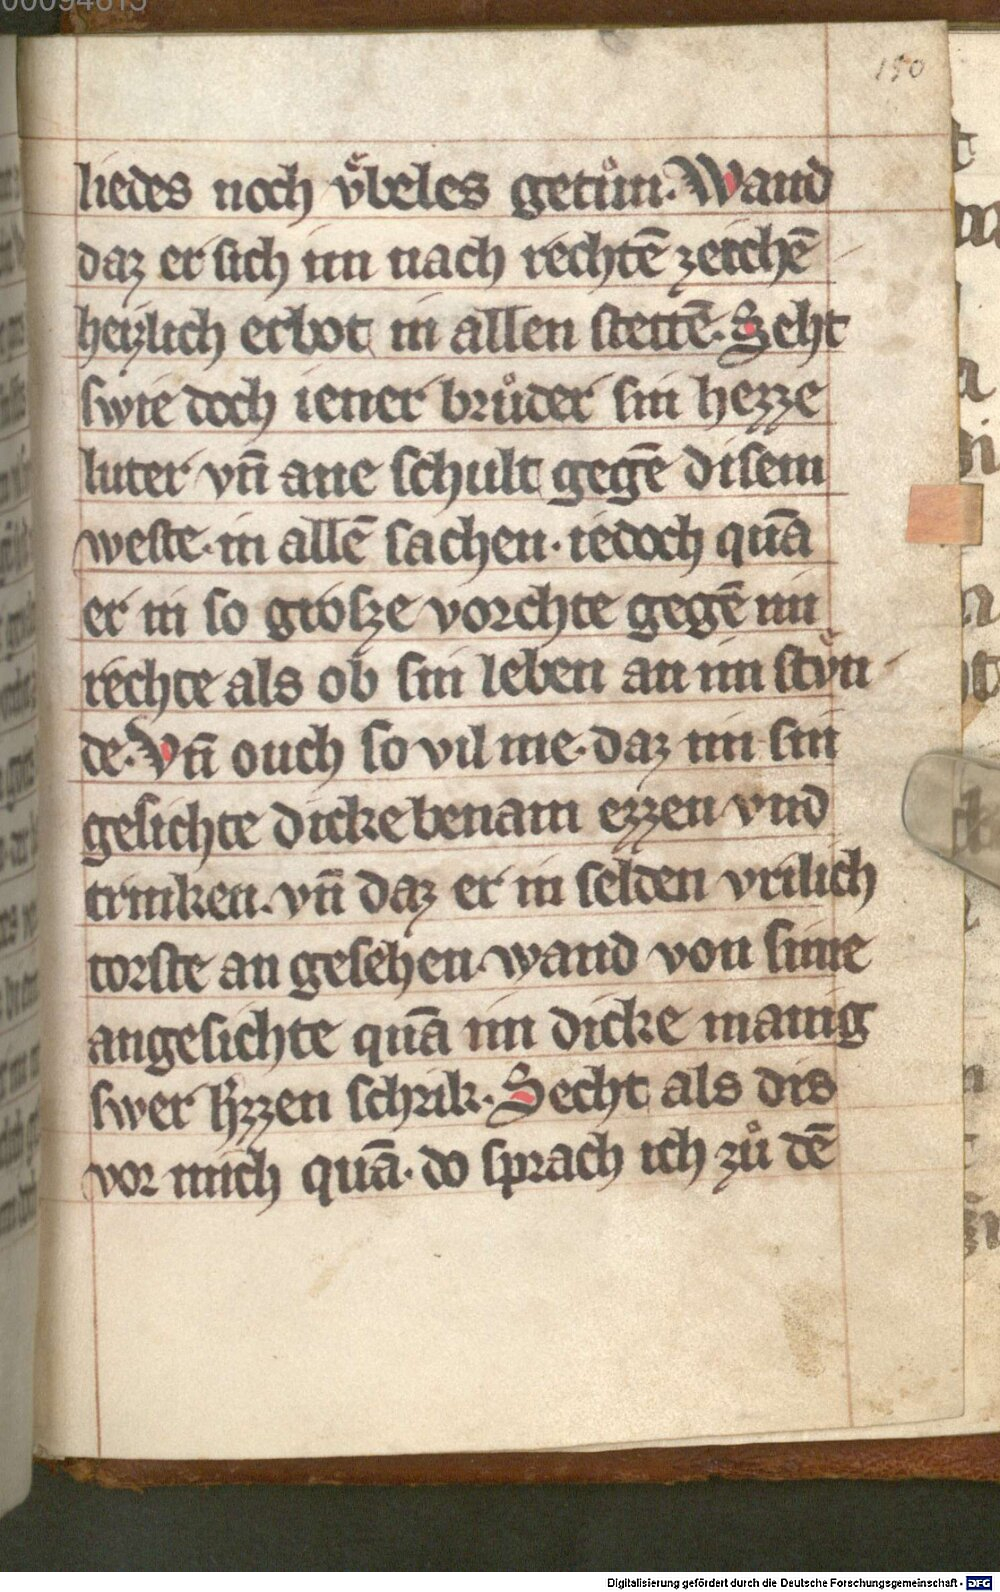 00094615
150
liedes noch vͤbeles getuͦn. Wand
daz er sich im nach rechtē zeichē
herzlich erbot in allen stetē. Seht
swie doch iener bruͦder sin herze
luter vn̄ ane schult gegē disem
weste. in allē sachen. iedoch quā
er in so grosze vorchte gegē im
rechte als ob sin leben an im stvͤn
de. Vn̄ ouch so vil me. daz im sin
gesichte dicke benam ezzen vnd
trinken. vn̄ daz er in selden vrilich
torste an gesehen. wand von sime
angesichte quā im dicke manig
swer hʼzzen schrik. Secht als dis
vor mich quā. do sprach ich zuͦ dē
Digitalisierung gefördert durch die Deutsche Forschungsgemeinschaft - DFG